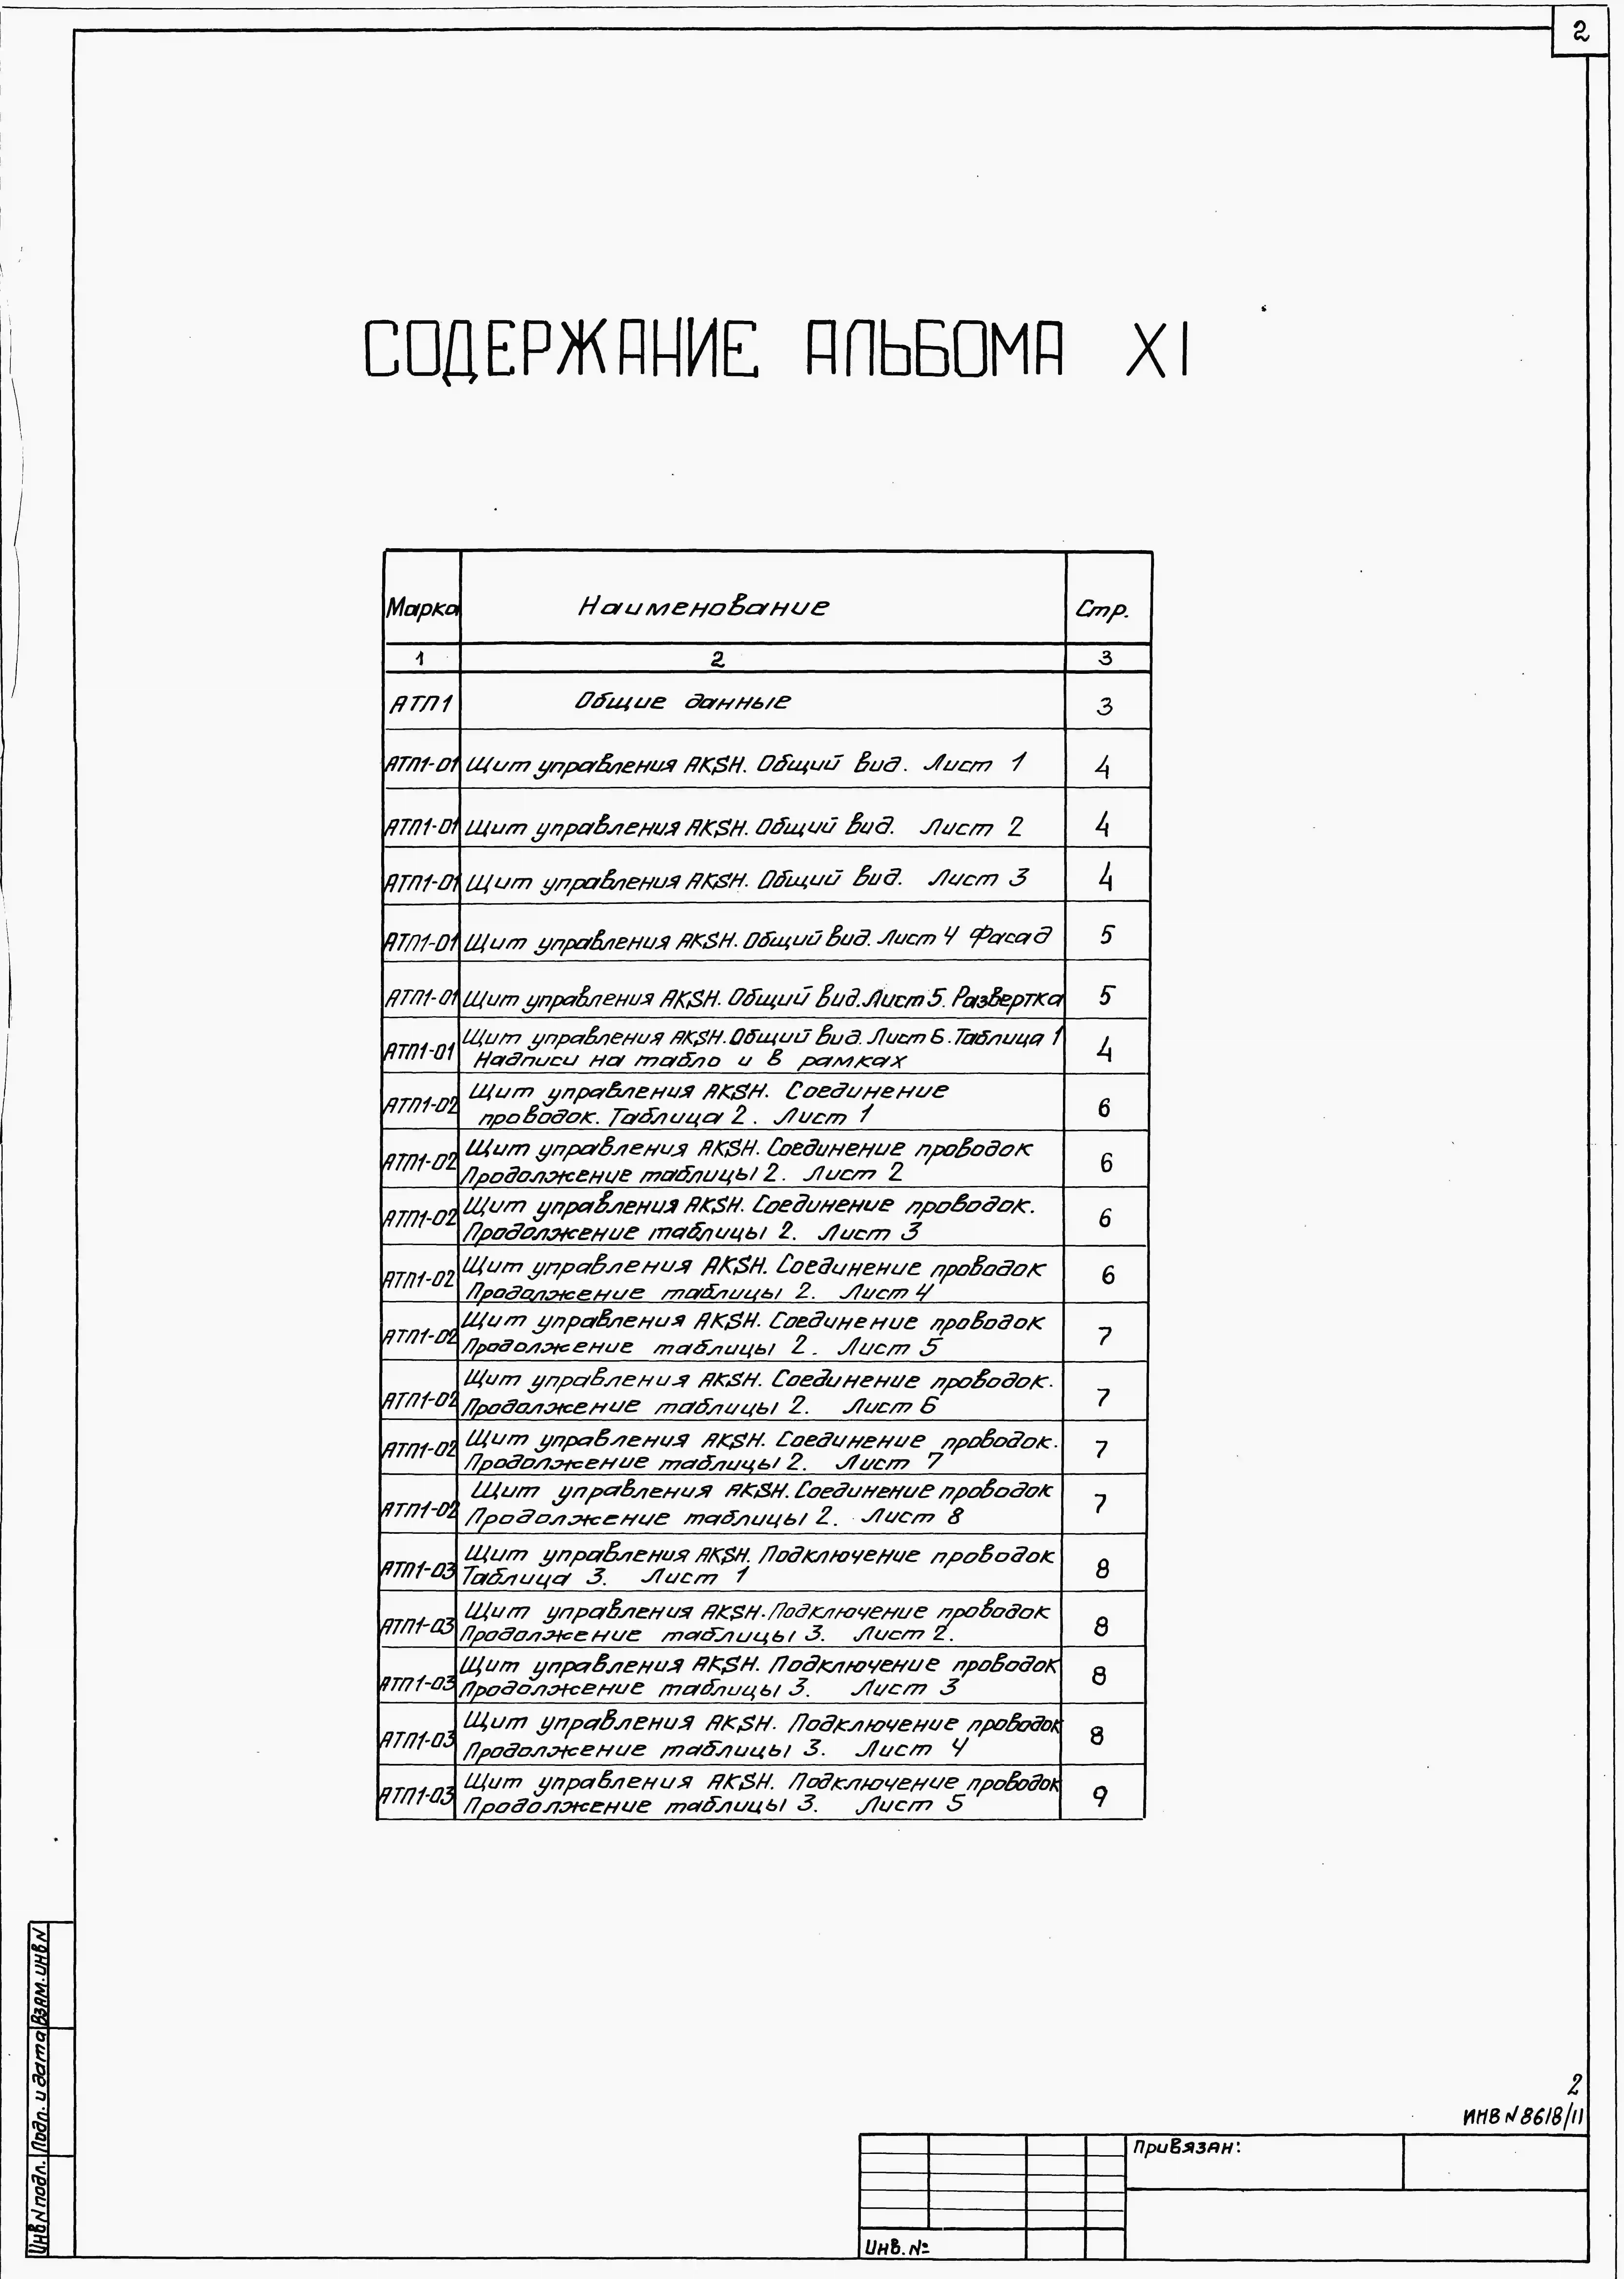 2
СОДЕРЖАНИЕ АЛЬБОМА XI
Марка Наименование Стр.
1 2 3
АТП1 Общие данные 3
АТП1-01 Щит управления AKSH. Общий вид. Лист 1 4
АТП1-01 Щит управления AKSH. Общий вид. Лист 2 4
АТП1-01 Щит управления AKSH. Общий вид. Лист 3 4
АТП1-01 Щит управления AKSH. Общий вид. Лист 4 Фасад 5
АТП1-01 Щит управления AKSH. Общий вид. Лист 5. Развертка 5
АТП1-01 Щит управления AKSH. Общий вид. Лист 6. Таблица 1 4
Надписи на табло и в рамках
АТП1-02 Щит управления AKSH. Соединение 6
проводок. Таблица 2. Лист 1
АТП1-02 Щит управления AKSH. Соединение проводок 6
Продолжение таблицы 2. Лист 2
АТП1-02 Щит управления AKSH. Соединение проводок. 6
Продолжение таблицы 2. Лист 3
АТП1-02 Щит управления AKSH. Соединение проводок 6
Продолжение таблицы 2. Лист 4
АТП1-02 Щит управления AKSH. Соединение проводок 7
Продолжение таблицы 2. Лист 5
АТП1-02 Щит управления AKSH. Соединение проводок. 7
Продолжение таблицы 2. Лист 6
АТП1-02 Щит управления AKSH. Соединение проводок. 7
Продолжение таблицы 2. Лист 7
АТП1-02 Щит управления AKSH. Соединение проводок 7
Продолжение таблицы 2. Лист 8
АТП1-03 Щит управления AKSH. Подключение проводок 8
Таблица 3. Лист 1
АТП1-03 Щит управления AKSH. Подключение проводок 8
Продолжение таблицы 3. Лист 2.
АТП1-03 Щит управления AKSH. Подключение проводок 8
Продолжение таблицы 3. Лист 3
АТП1-03 Щит управления AKSH. Подключение проводок 8
Продолжение таблицы 3. Лист 4
АТП1-03 Щит управления AKSH. Подключение проводок 9
Продолжение таблицы 3. Лист 5
Инв N подл. Подп. и дата Взам. инв N
2
ИНВ N 8618/11
Привязан:
Инв. №